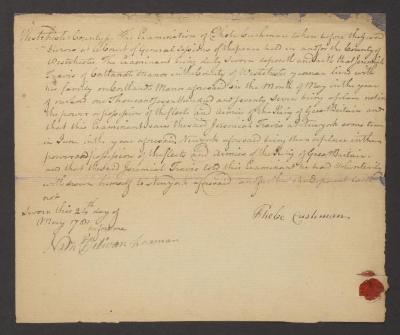 Westchester County ss. The Examination of Phebe Cushman taken before the
at a Court of General Sessions of the peace held in and for the County of
Westchester. The Examinant being duly Sworn deposeth and saith that Jeremiah
Travis of Cortlandt Manor in the County of Westchester yeoman lived with
his family on Cortlandt Manor aforesaid in the Month of May in the year
of our Lord one Thousand Seven Hundred and Seventy Seven being a place not in
the power or possession of the fleets and Armies of the King of Great Britain and
that this Examinant saw the said Jeremiah Travis at New york some time
in June in the year aforesaid, New york aforesaid being then a place in the
power and possession of the fleets and Armies of the King of Great Britain
and that the said Jeremiah Travis told this Examinant he had Voluntarily
withdrawn himself to New york aforesaid and further this Deponent saith
not
Sworn this 24th day of
May 1781
before me
Phebe Cushman
Nathl Delivan foreman